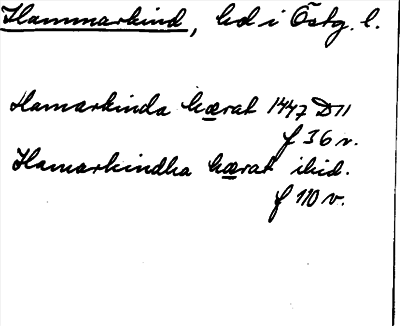 Hammarkind, hd i Östg. l.
Hamarkinda hærat 1447 D11
f 36 v.
Hamarkindha hærat ibid.
f 110 v.